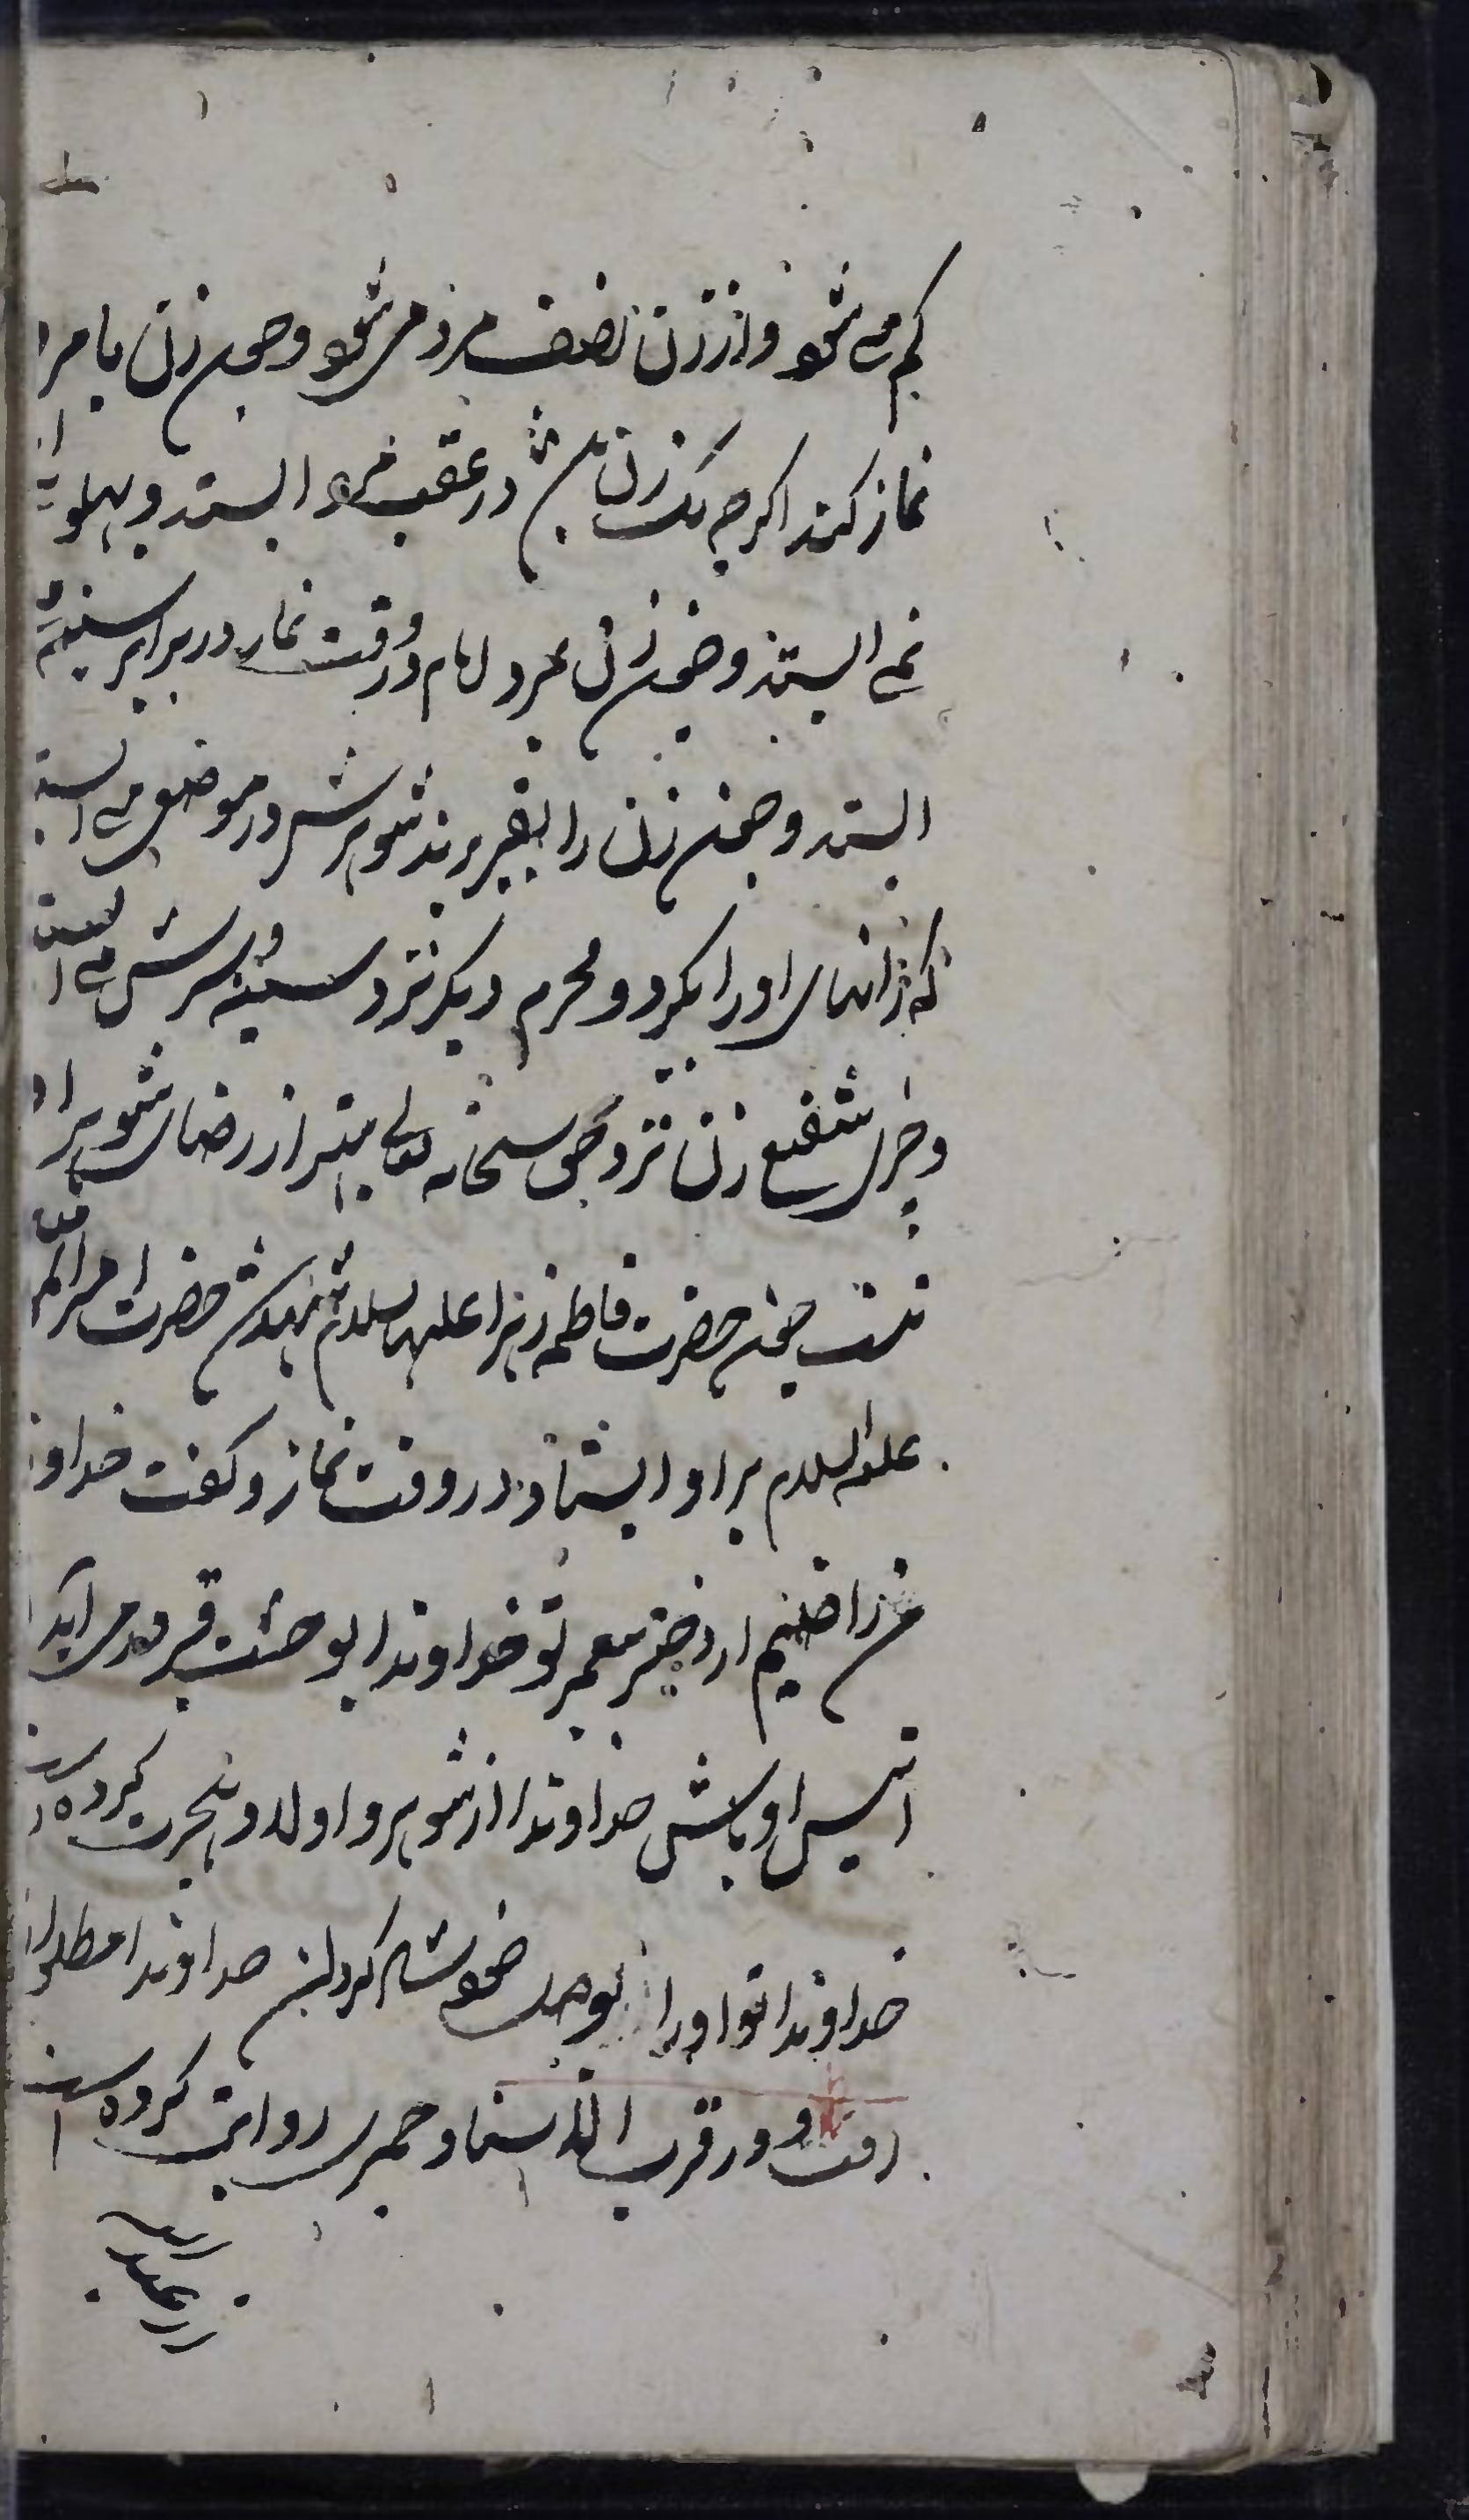 کم می شود و از زن نصف مرد می شود و چون زن با مرد
نماز کند اگرچه یک زن باشد در عقب مرد ایستد و پهلوی
نمی ایستد و چون زن بمیرد امام در وقت نماز در برابر سینه
ایستد و چون زن را بقبر برند شوهرش در موضعی می ایستد
که رانهای او را بگیرد و محرم دیگر نزد سینه و سرش می ایستد
و چیزی شفیع زن نزد حق سبحانه تعالی بهتر از رضای شوهر او
نیست چون حضرت فاطمه زهرا علیها السلام شهید شد حضرت امیر المؤمنین
علیه السلام بر او ایستاد در وقت نماز و گفت خداوندا
من راضیم از دختر پیغمبر تو خداوندا بوحشت قبر در می آید
انیس او باش خداوندا از شوهر و اولاد هجرت کرده است
خداوندا تو او را بوصل خوشحال گردان خداوندا مظلوم
رفت و در قرب الاسناد حمیری روایت کرده است